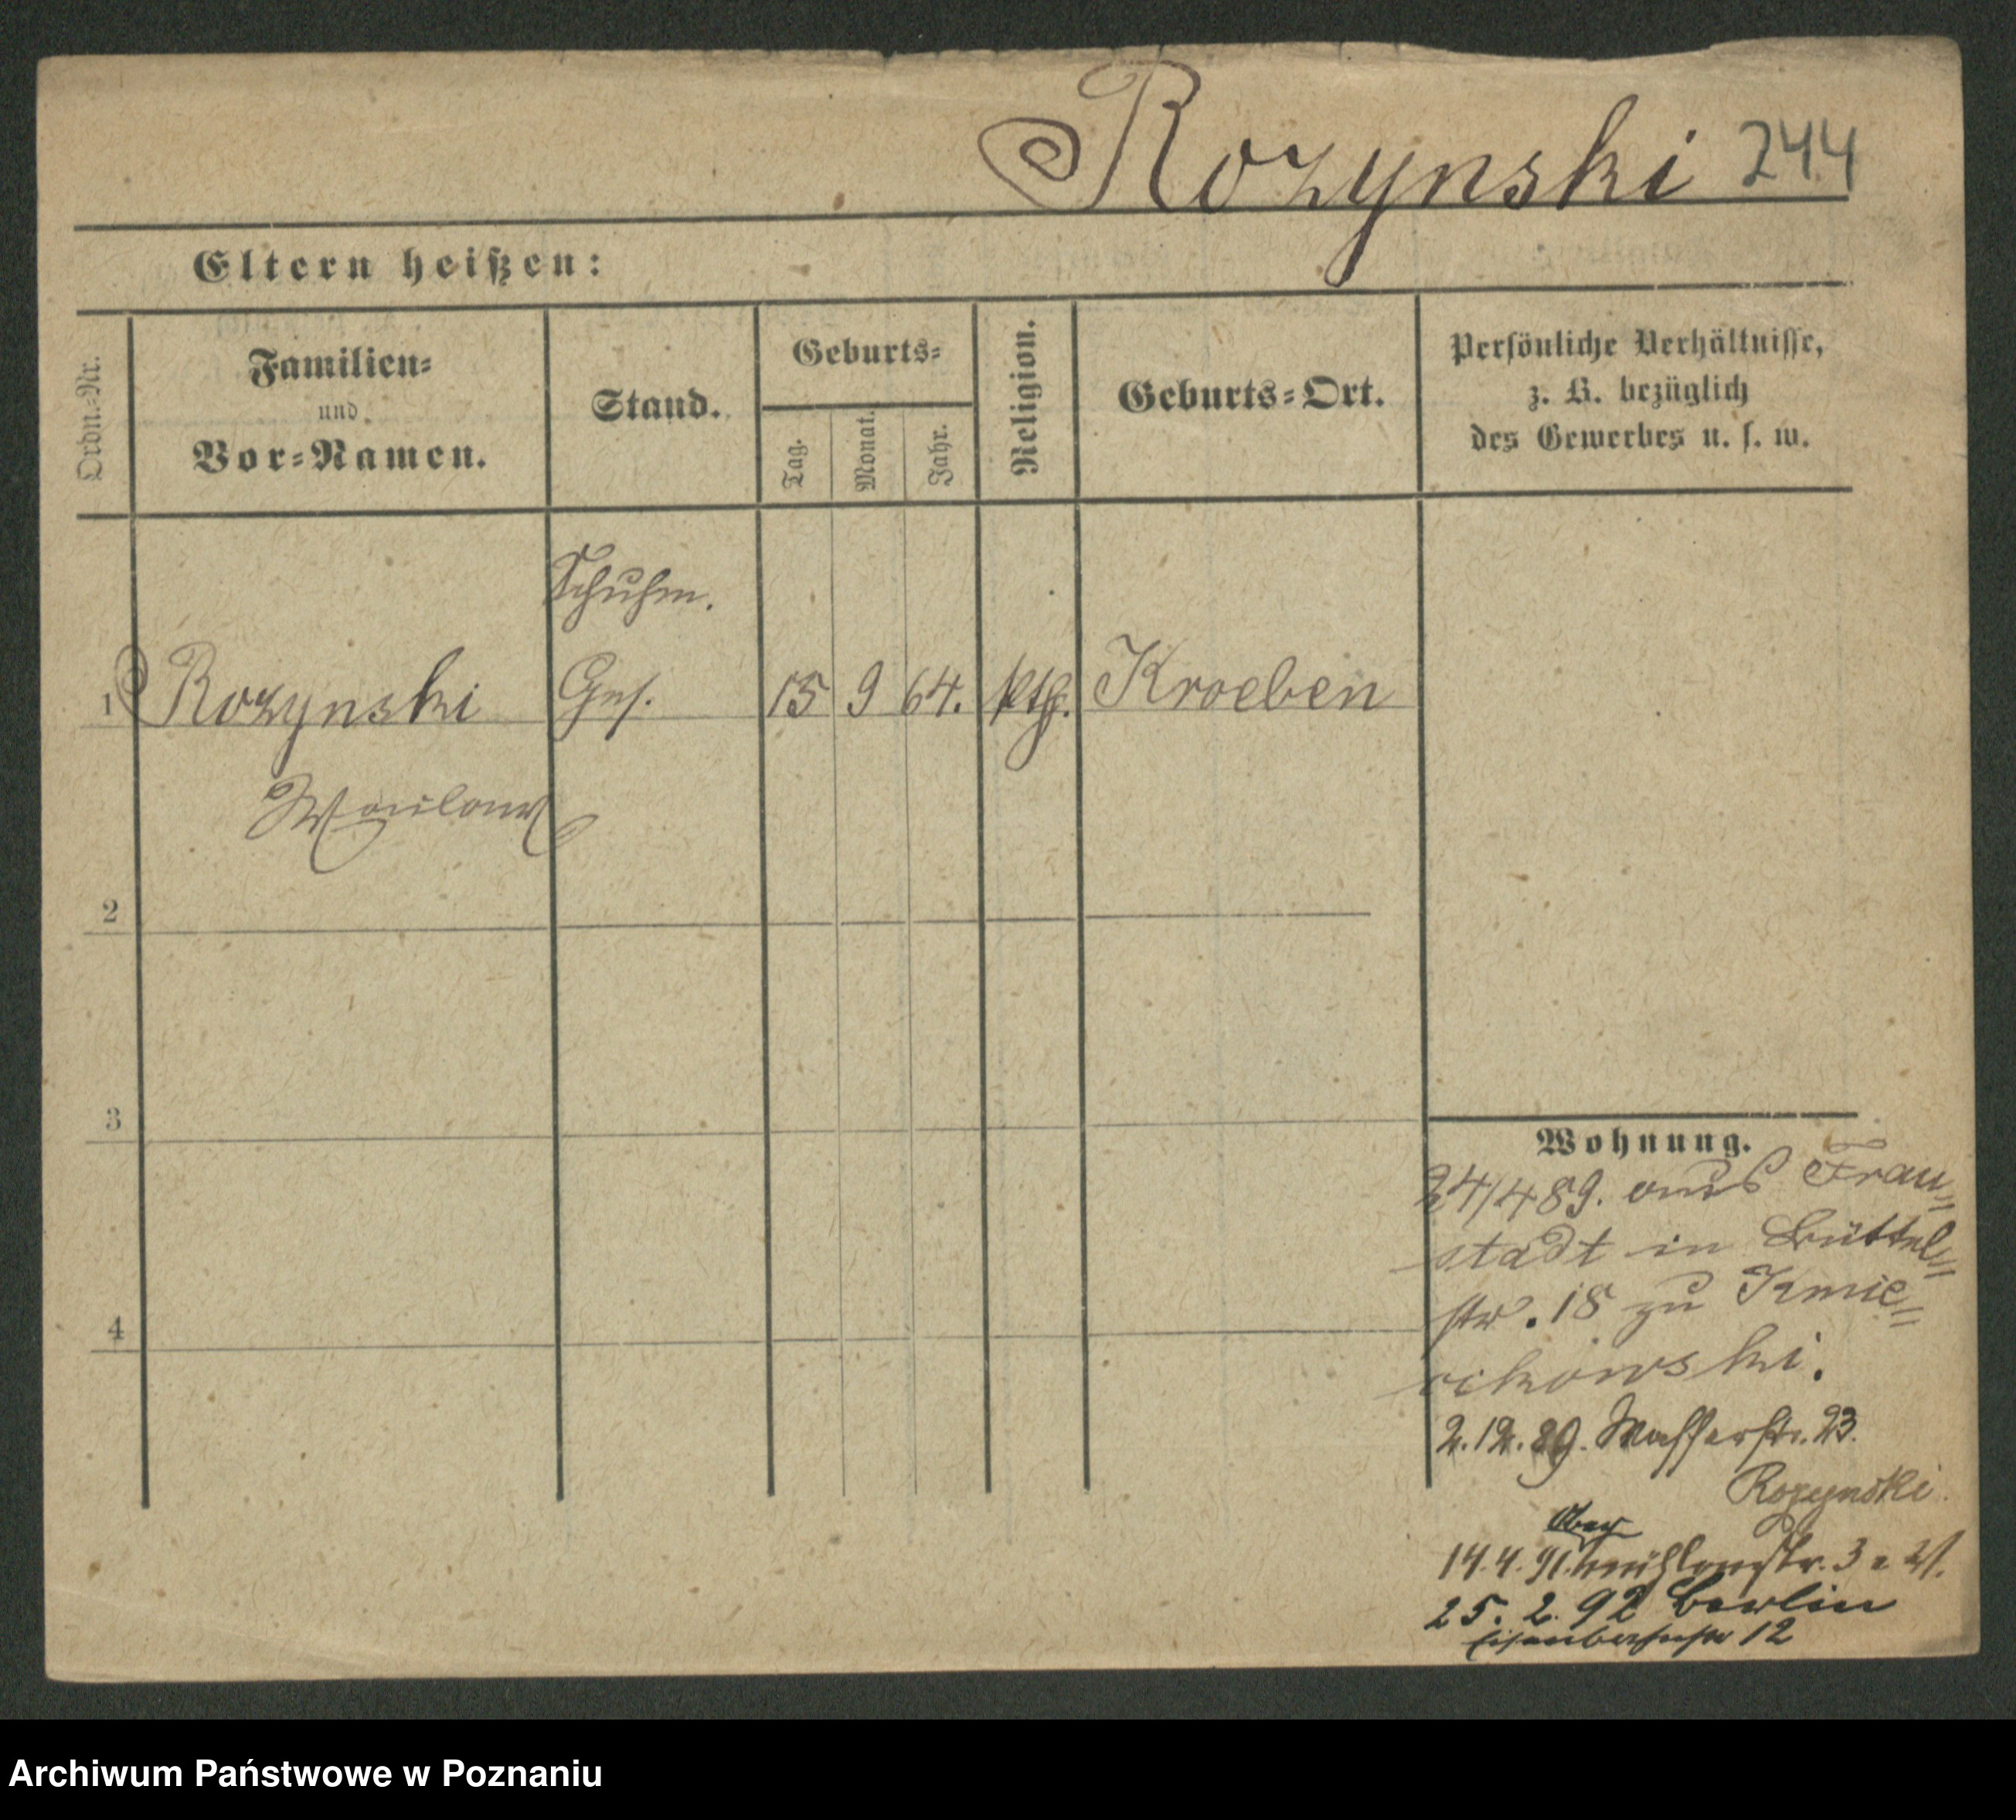 Rozynski 244
Eltern heißen:
Ordn.-Nr.
Familien-
und
Vor-Namen.
Stand.
Geburts-
Tag.
Monat.
Jahr.
Religion.
Geburts-Ort.
Persönliche Verhältnisse,
z. B. bezüglich
des Gewerbes u. s. w.
Schuhm.
1 Rozynski Ges. 15 9 64. kth. Kroeben
2
3
4
Wohnung.
24/4 89. aus Frau-
stadt in Büttel-
str. 18 zu Kmie-
cikowski.
2.12.89. Wasserstr. 23.
Rozynski
Ober
14.4.91. mühlenstr. 3
25. 2. 92 Berlin
Eisenbahnstr 12
Archiwum Państwowe w Poznaniu